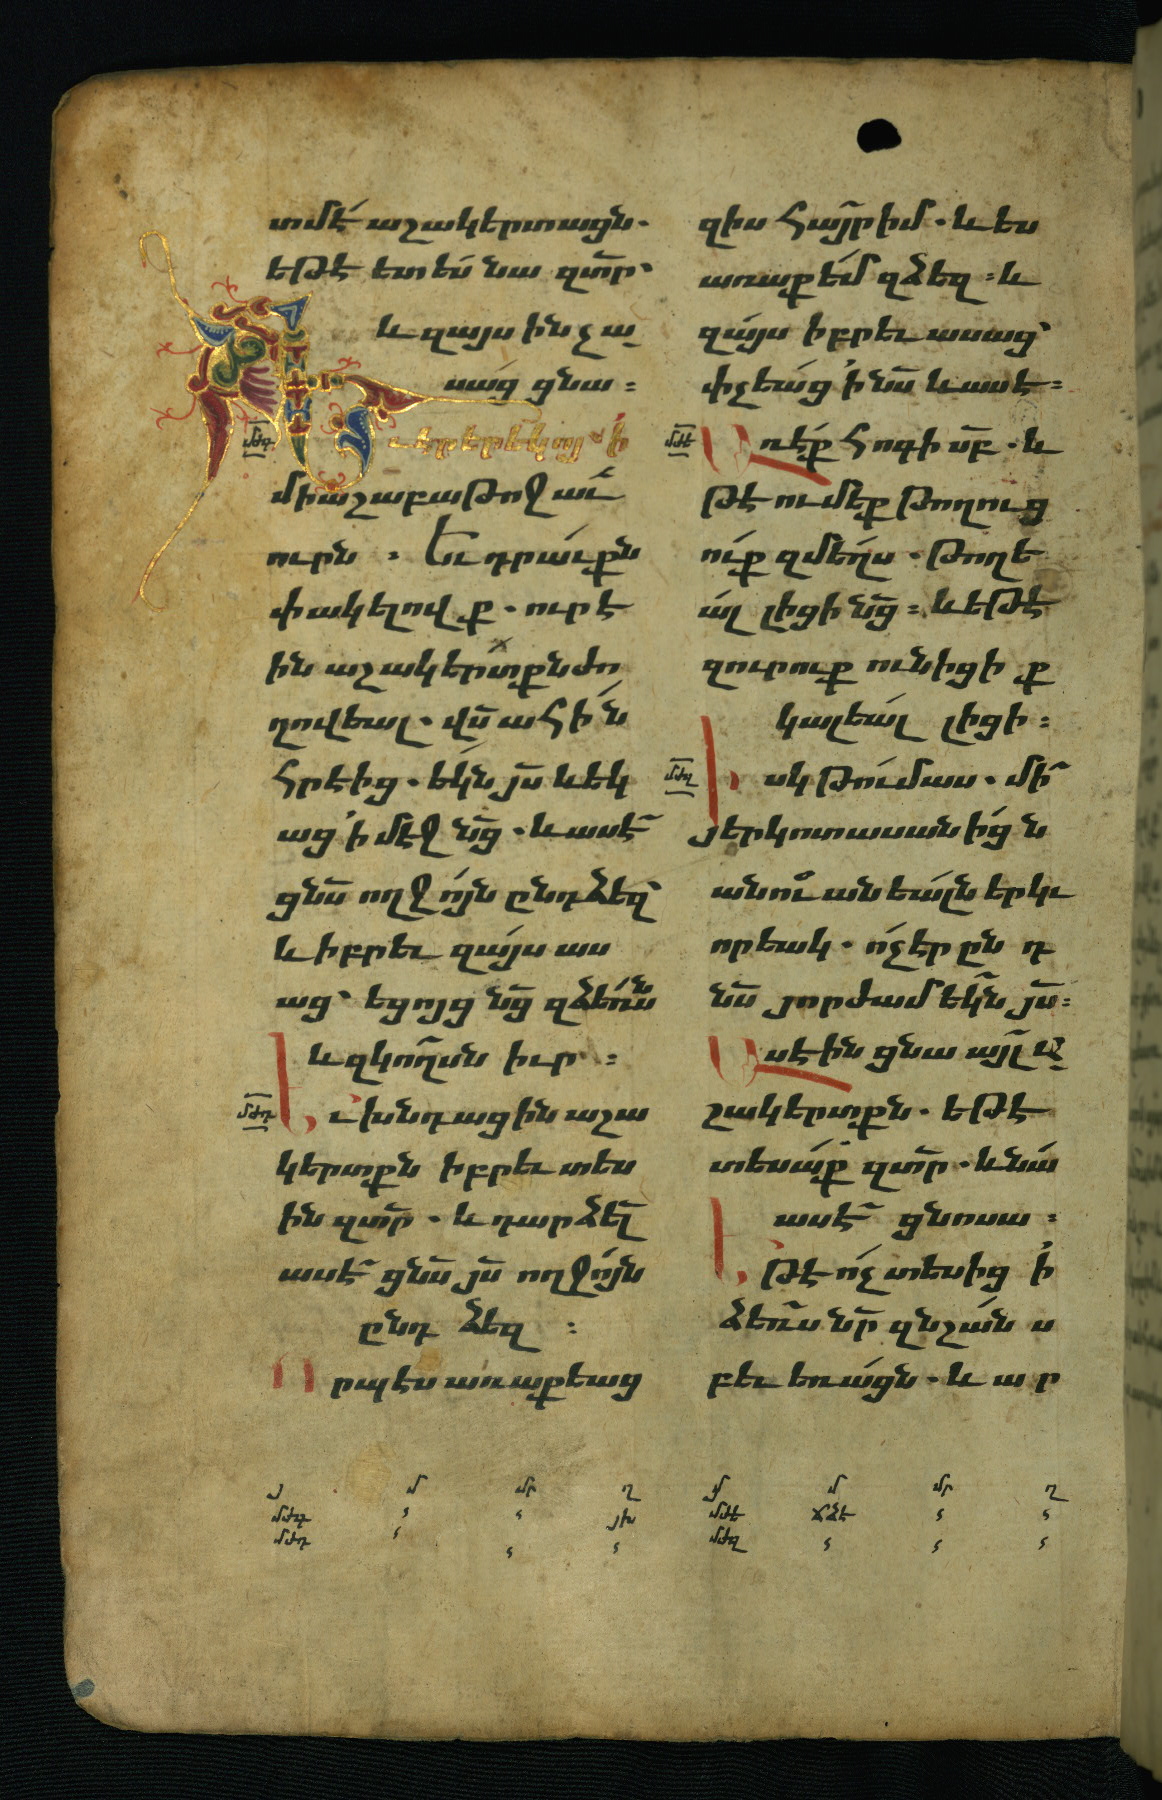 տմէ աշակերտացն.
եթէ ետես նա զտ̅ր՝
և զայս ինչ ա
սաց ցնա ։
մժգ
Եւ էր երեկոյ ՝ի
միաշաբաթոջ աւ
ուրն ։ Եւ դրաւքն
փակելովք. ուր է
ին աշակերտքն ժո
ղովեալ. վս̅ ահին
հրէից. եկն յս̅ և եկ
աց ՝ի մէջ նց̅. և ասէ
ցնս̅ ողջոյն ընդ ձեզ՝
և իբրեւ զայս աս
աց՝ եցոյց նց̅ զձեռսն
և զկողսն իւր ։
մժդ
Եւ խնդացին աշա
կերտքն իբրեւ տես
ին զտ̅ր. և դարձել̅
ասէ ցնս̅ յս̅ ողջոյն
ընդ ձեզ ։
Որպէս առաքեաց
զիս հայր իմ. և ես
առաքեմ զձեզ ։ և
զայս իբրեւ ասաց՝
փչեաց ՝ի նս̅ և ասէ ։
մժե
Առէք հոգի սբ̅. և
թէ ումեք թողուց
ուք զմեղս. թողե
ալ լիցի նց̅ ։ և եթէ
զուրուք ունիցիք
կալեալ լիցի ։
մժզ
Իսկ թումաս. մի
յերկոտասանիցն
անուանեալն երկւ
որեակ. ոչ էր ընդ
նս̅ յորժամ եկն յս̅ ։
Ասեին ցնա այլ ա
շակերտքն. եթէ
տեսաք զտ̅ր. և նա
ասէ ցնոսա ։
Եթէ ոչ տեսից ՝ի
ձեռս նր̅ զնշան ս
բեւեռացն. և ար
յ մ մր ղ
մժգ յխ
մժդ
յ մ մր ղ
մժե ճձե
մժզ